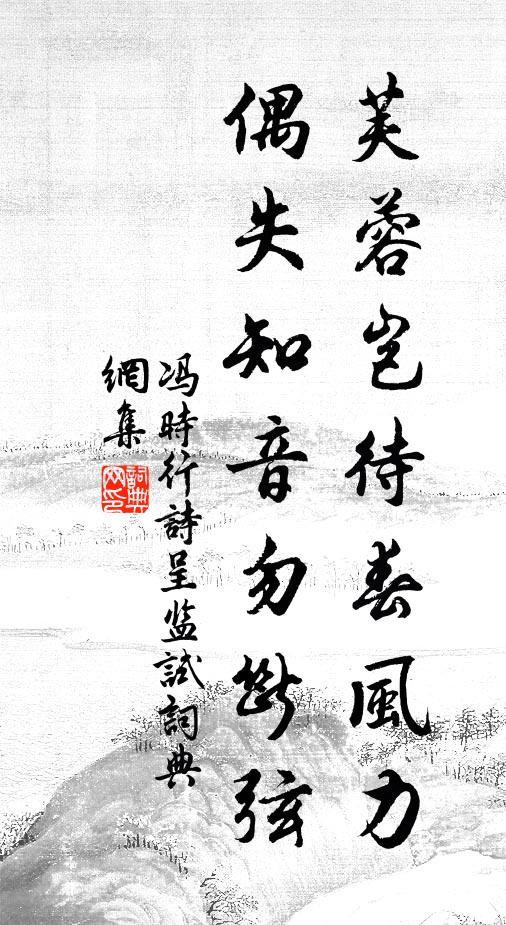 芙蓉岂待春風力
偶失知音勿断弦
冯時行詩呈监試詞典
網集
詞典
网印